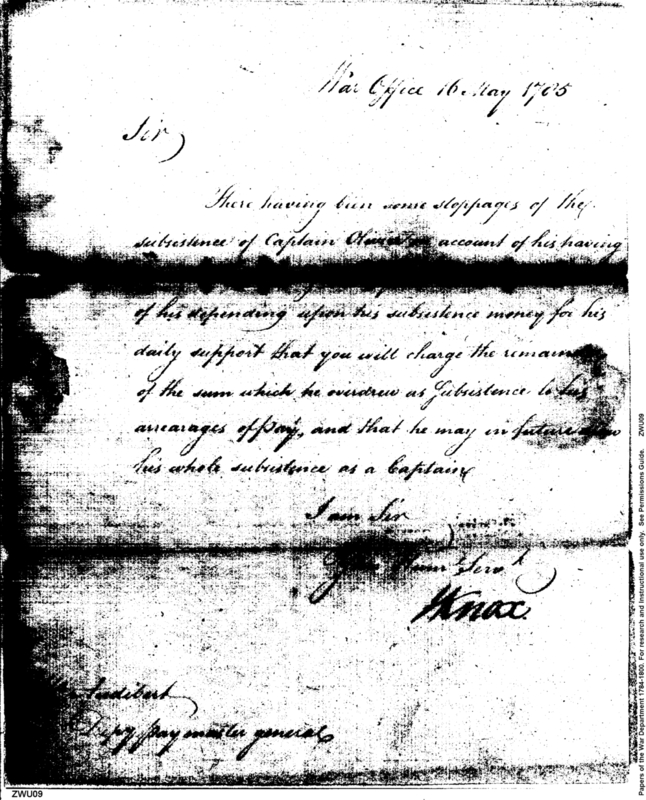 War Office 16 May 1785
Sir
There having been some stoppages of the
subsistence of Captain account of his having
of his depending upon his subsistence money for his
daily support that you will charge the
of the sum which he overdrew as Subsistence to his
arrearages of pay, and that he may in future
his whole subsistence as a Captain
I am Sir
Your Humr. Servt
HKnox
Audibert
Depy paymaster general
ZWU09
Papers of the War Department 1784-1800. For research and instructional use only. See Permissions Guide. ZWU09